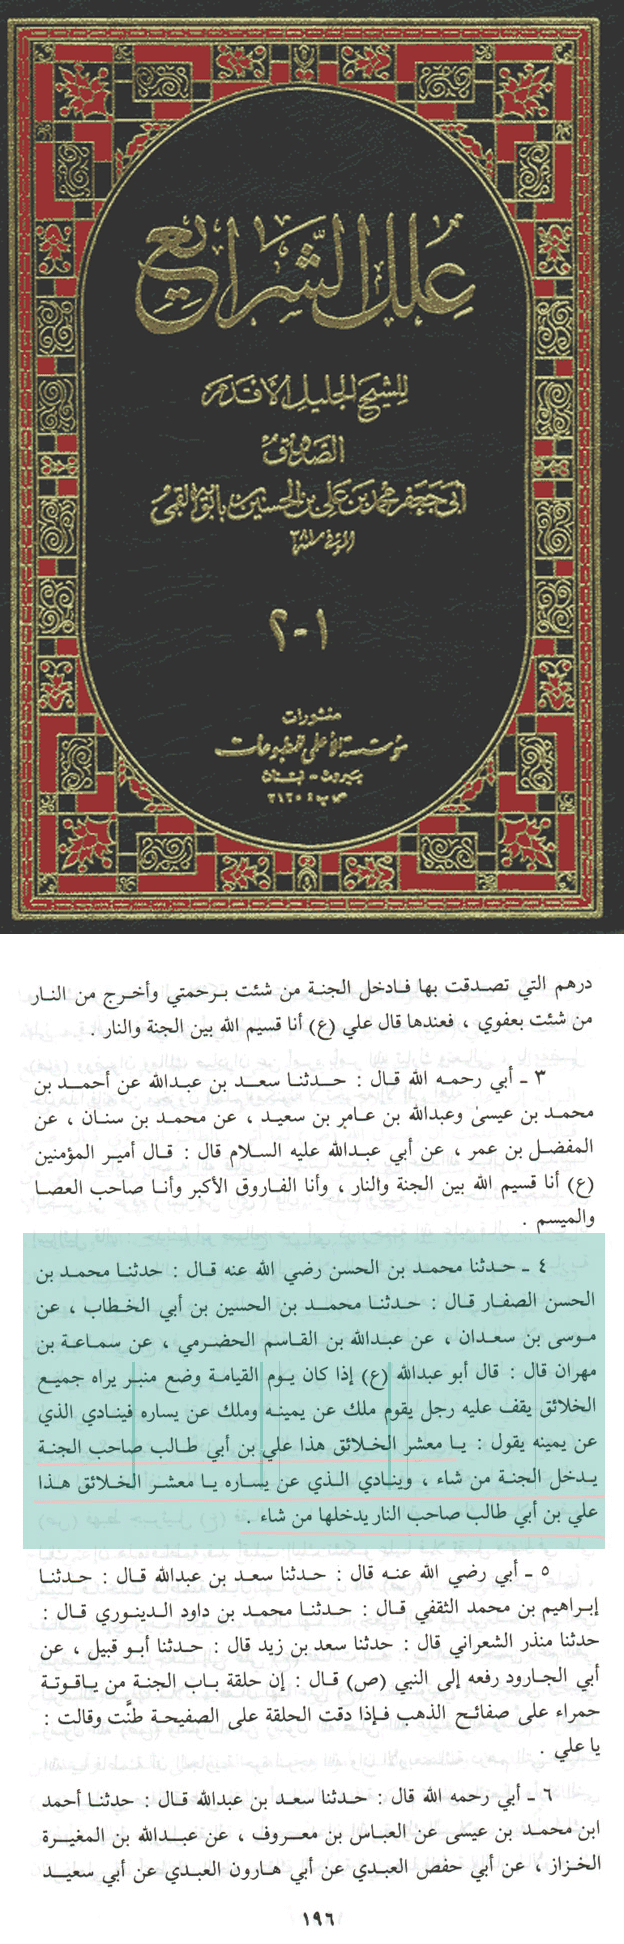 علل الشرايع
للشيخ الجليل الأقدم
الصدوق
أبي جعفر محمد بن علي بن الحسين بن بابويه القمي
١-٢
منشورات
مؤسسة الأعلمي للمطبوعات
بيروت - لبنان
ص.ب ٧١٢٠
درهم التي تصدقت بها فادخل الجنة من شئت برحمتي وأخرج من النار
من شئت بعفوي ، فعندها قال علي (ع) أنا قسيم الله بين الجنة والنار .
٣ ـ أبي رحمه الله قال : حدثنا سعد بن عبدالله عن أحمد بن
محمد بن عيسى وعبدالله بن عامر بن سعيد ، عن محمد بن سنان ، عن
المفضل بن عمر ، عن أبي عبدالله عليه السلام قال : قال أمير المؤمنين
(ع) أنا قسيم الله بين الجنة والنار ، وأنا الفاروق الأكبر وأنا صاحب العصا
والميسم .
٤ ـ حدثنا محمد بن الحسن رضي الله عنه قال : حدثنا محمد بن
الحسن الصفار قال : حدثنا محمد بن الحسين بن أبي الخطاب ، عن
موسى بن سعدان ، عن عبدالله بن القاسم الحضرمي ، عن سماعة بن
مهران قال : قال أبو عبدالله (ع) إذا كان يوم القيامة وضع منبر يراه جميع
الخلائق يقف عليه رجل يقوم ملك عن يمينه وملك عن يساره فينادي الذي
عن يمينه يقول : يا معشر الخلائق هذا علي بن أبي طالب صاحب الجنة
يدخل الجنة من شاء ، وينادي الذي عن يساره يا معشر الخلائق هذا
علي بن أبي طالب صاحب النار يدخلها من شاء .
٥ ـ أبي رضي الله عنه قال : حدثنا سعد بن عبدالله قال : حدثنا
إبراهيم بن محمد الثقفي قال : حدثنا محمد بن داود الدينوري قال :
حدثنا منذر الشعراني قال : حدثنا سعد بن زيد قال : حدثنا أبو قبيل ، عن
أبي الجارود رفعه إلى النبي (ص) قال : إن حلقة باب الجنة من ياقوتة
حمراء على صفائح الذهب فإذا دقت الحلقة على الصفيحة طنَّت وقالت :
يا علي .
٦ ـ أبي رحمه الله قال : حدثنا سعد بن عبدالله قال : حدثنا أحمد
ابن محمد بن عيسى عن العباس بن معروف ، عن عبدالله بن المغيرة
الخزاز ، عن أبي حفص العبدي عن أبي هارون العبدي عن أبي سعيد
١٩٦